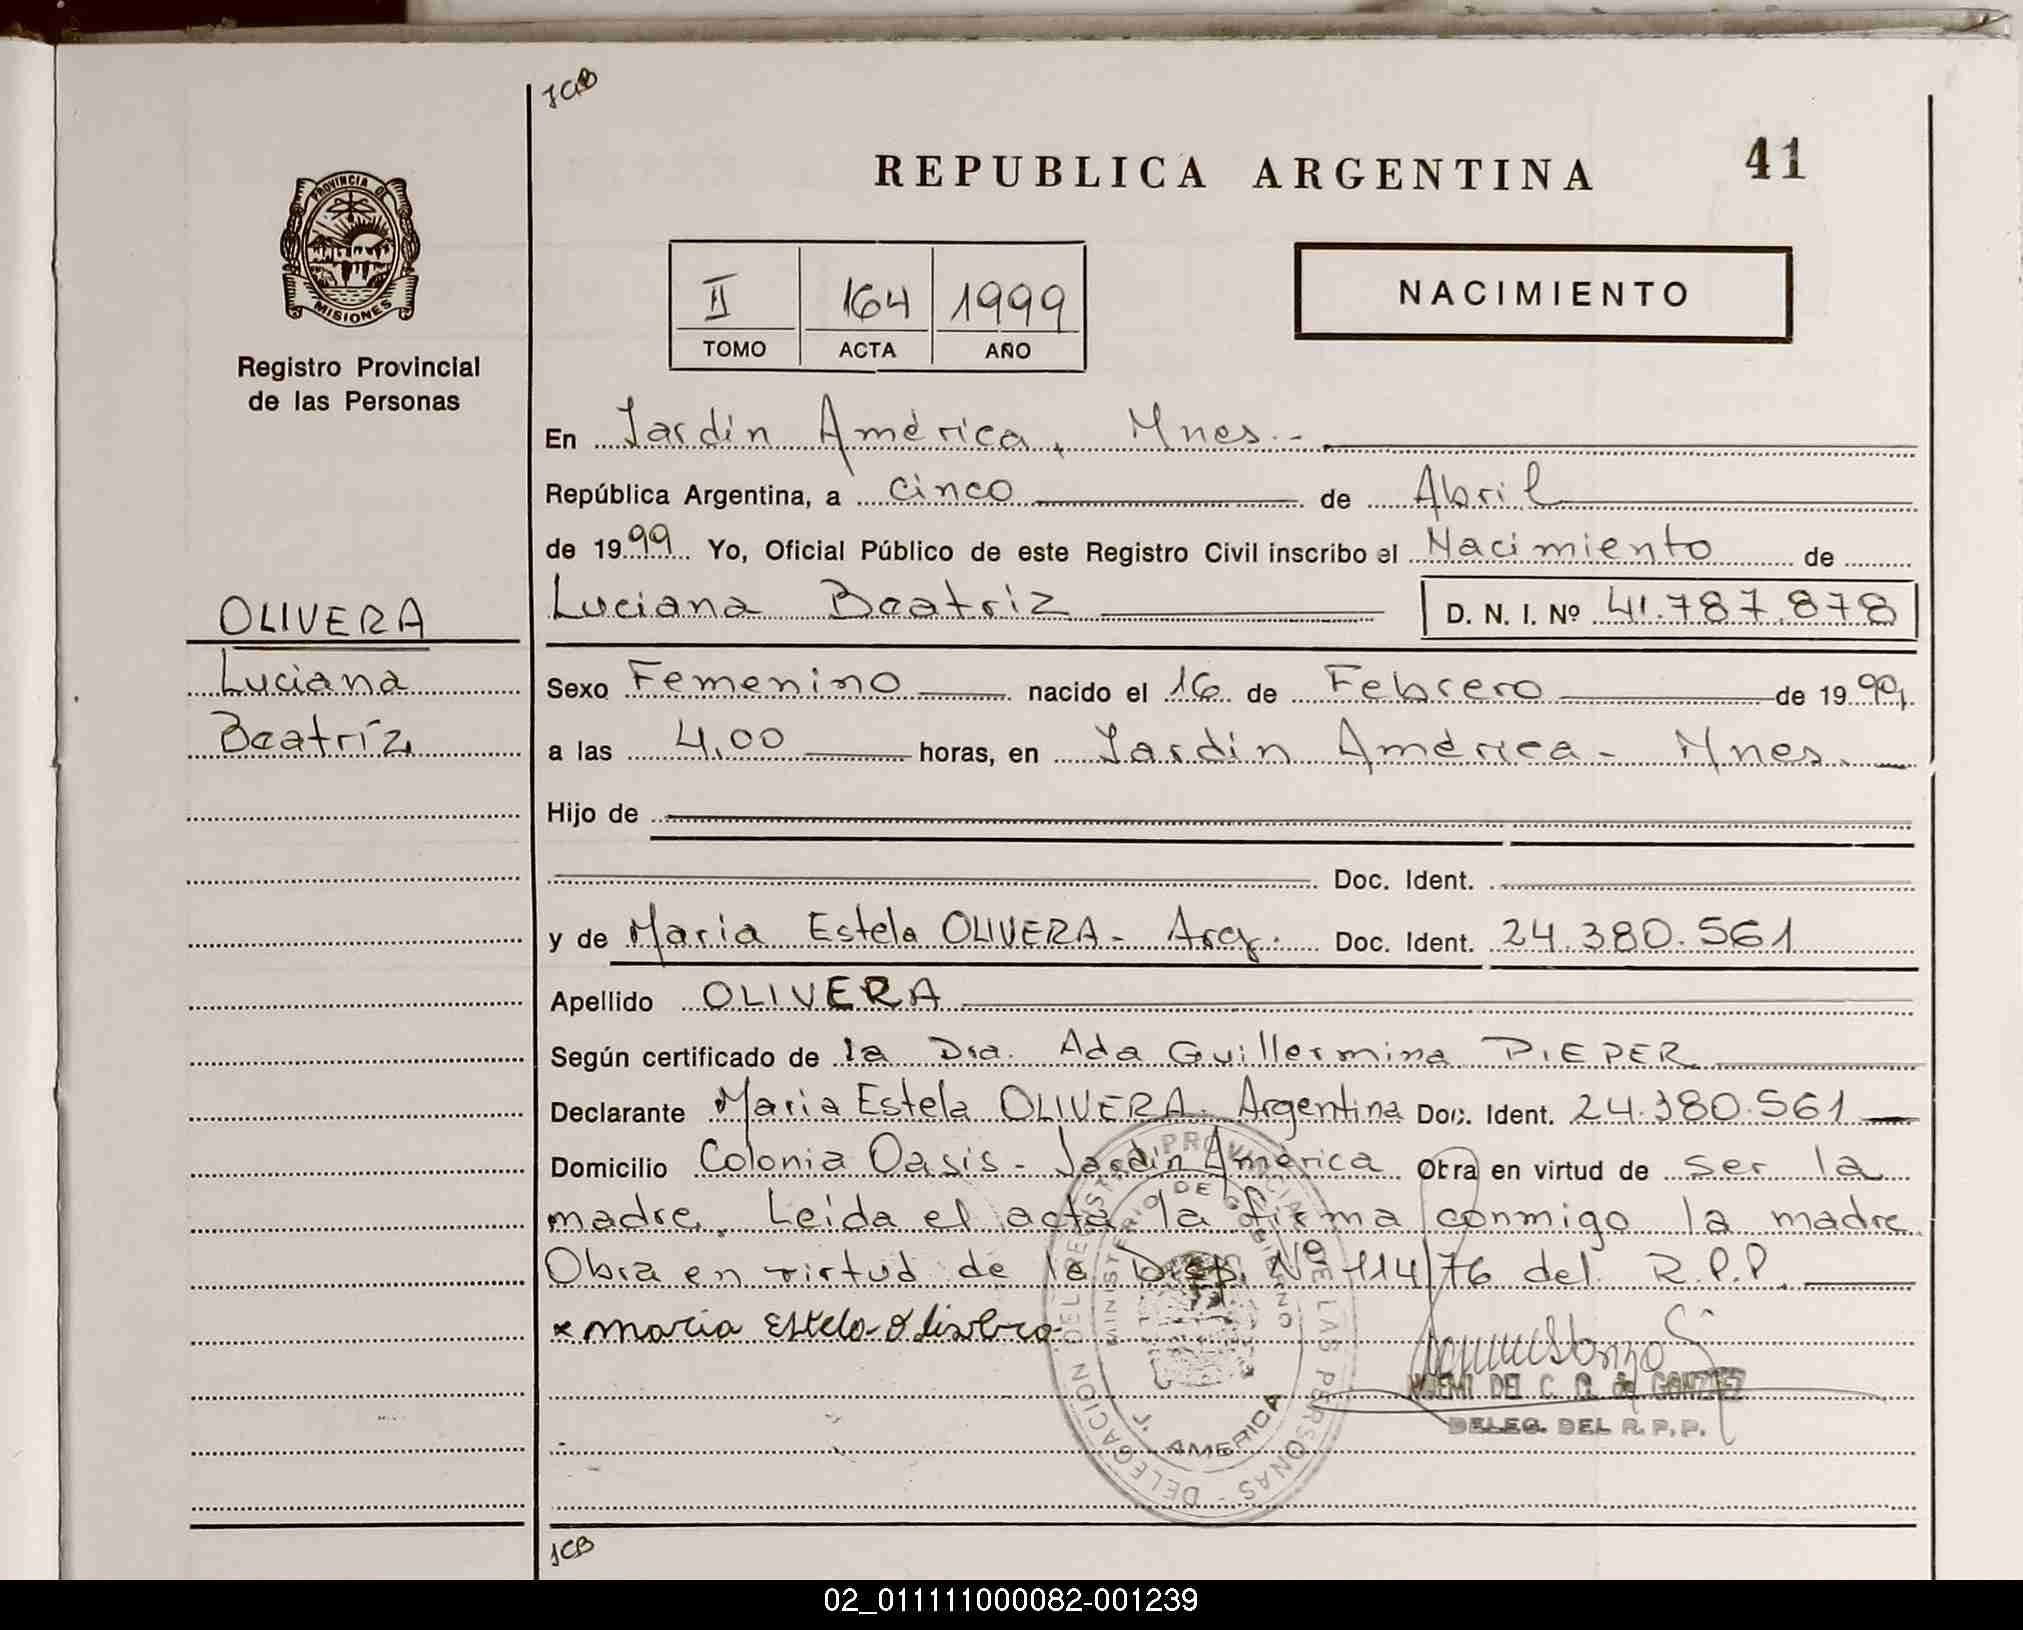 JCB
REPUBLICA ARGENTINA
41
PROVINCIA DE
MISIONES
Registro Provincial
de las Personas
II 164 1999
TOMO ACTA AÑO
NACIMIENTO
En Jardín América, Mnes.-
República Argentina, a cinco de Abril
de 1999 Yo, Oficial Público de este Registro Civil inscribo el Nacimiento de
Luciana Beatriz D. N. I. Nº 41.787.878
OLIVERA
Luciana
Beatríz
Sexo Femenino nacido el 16 de Febrero de 1999
a las 4,00 horas, en Jardín América - Mnes.
Hijo de
Doc. Ident.
y de Maria Estela OLIVERA - Arg. Doc. Ident. 24.380.561
Apellido OLIVERA
Según certificado de la Dra. Ada Guillermina PIEPER
Declarante Maria Estela OLIVERA - Argentina Doc. Ident. 24.380.561
Domicilio Colonia Oasis - Jardín América Obra en virtud de ser la
madre. Leída el acta la firma conmigo la madre
Obra en virtud de la Disp. Nº 114/76 del R.P.P.
x maria Estela Olivera
DELEGACION DEL REGISTRO PROVINCIAL DE LAS PERSONAS - DELEGACION
MINISTERIO DE GOBIERNO
J. AMERICA
NOEMI DEL C. de GONZALEZ
DELEG. DEL R. P. P.
JCB
02_011111000082-001239